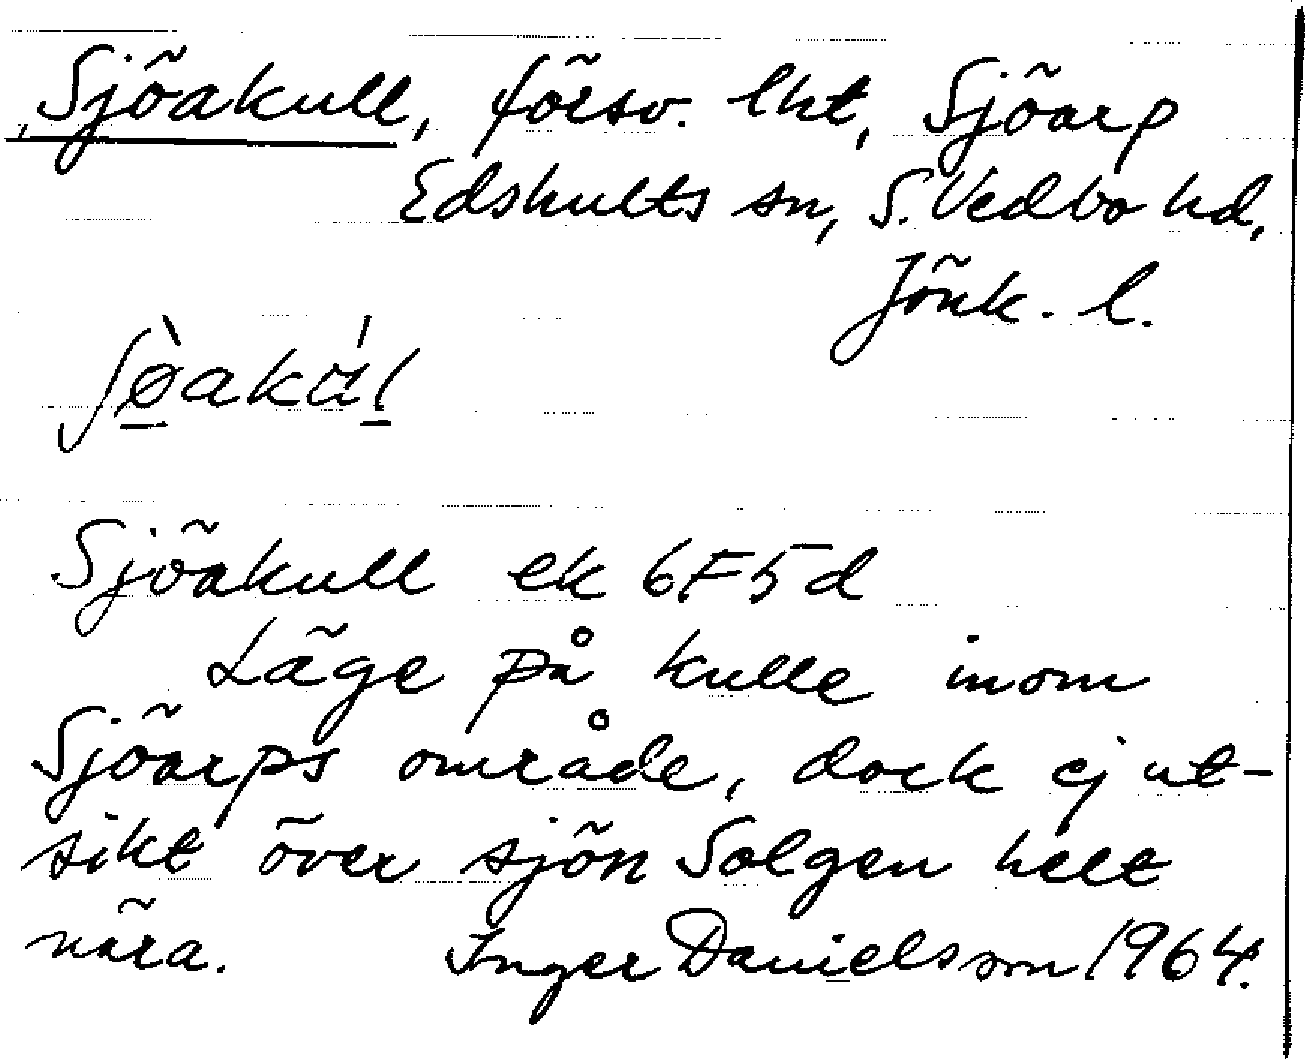 Sjöakull, försv. lht, Sjöarp
Edshults sn, S. Vedbo hd,
Jönk. l.
Sjöakull ek 6F5d
Läge på kulle inom
Sjöarps område, dock ej ut-
sikt över sjön Solgen helt
nära. Inger Danielsson 1964.